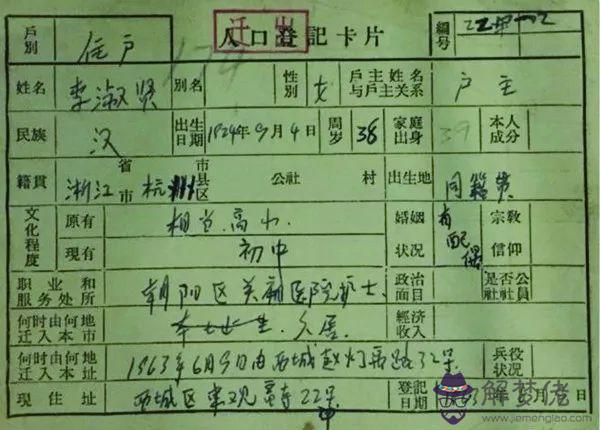 迁出
人口登記卡片
編号 22甲一12
戶別 住户
姓名 李淑贤 別名 性別 女 戶主姓名与戶主关系 户主
民族 汉 出生日期 1924年9月4日 周岁 38 家庭出身 39 本人成分
籍貫 浙江 省市 杭州 市县区 公社 村 出生地 同籍贯
文化程度 原有 相当高小 婚姻状况 有配偶 宗教信仰
現有 初中
职业和服务处所 朝阳区关厢医院护士 政治面目 是否公社社員
何时由何地迁入本市 久居 經济收入
何时由何地迁入本址 1963年6月9日由西城赵灯禹路32号 兵役状况
現住址 西城区东观音寺22号 登記日期 月 日
解梦佬
www.jiemenglao.com